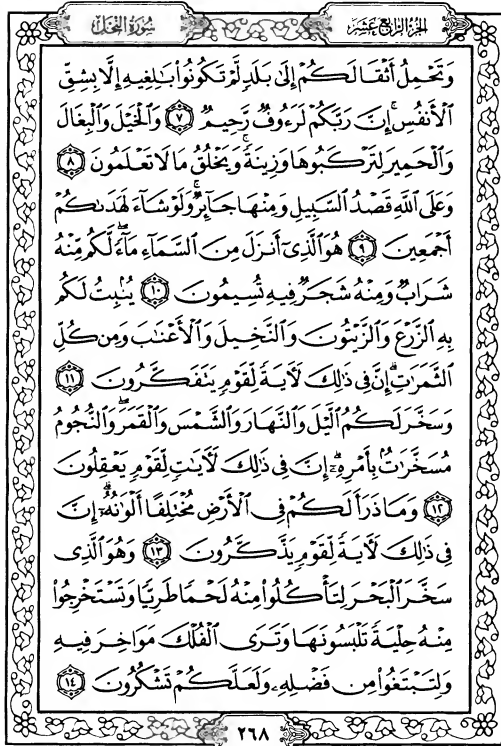 الجُزءُ الرَّابِعَ عَشَرَ
سُورَةُ النَّحْلِ
وَتَحْمِلُ أَثْقَالَكُمْ إِلَىٰ بَلَدٍ لَّمْ تَكُونُوا۟ بَٰلِغِيهِ إِلَّا بِشِقِّ
ٱلْأَنفُسِ ۚ إِنَّ رَبَّكُمْ لَرَءُوفٌ رَّحِيمٌ ٧ وَٱلْخَيْلَ وَٱلْبِغَالَ
وَٱلْحَمِيرَ لِتَرْكَبُوهَا وَزِينَةً ۚ وَيَخْلُقُ مَا لَا تَعْلَمُونَ ٨
وَعَلَى ٱللَّهِ قَصْدُ ٱلسَّبِيلِ وَمِنْهَا جَآئِرٌ ۚ وَلَوْ شَآءَ لَهَدَىٰكُمْ
أَجْمَعِينَ ٩ هُوَ ٱلَّذِىٓ أَنزَلَ مِنَ ٱلسَّمَآءِ مَآءً ۖ لَّكُم مِّنْهُ
شَرَابٌ وَمِنْهُ شَجَرٌ فِيهِ تُسِيمُونَ ١٠ يُنۢبِتُ لَكُم
بِهِ ٱلزَّرْعَ وَٱلزَّيْتُونَ وَٱلنَّخِيلَ وَٱلْأَعْنَٰبَ وَمِن كُلِّ
ٱلثَّمَرَٰتِ ۗ إِنَّ فِى ذَٰلِكَ لَءَايَةً لِّقَوْمٍ يَتَفَكَّرُونَ ١١
وَسَخَّرَ لَكُمُ ٱلَّيْلَ وَٱلنَّهَارَ وَٱلشَّمْسَ وَٱلْقَمَرَ ۖ وَٱلنُّجُومُ
مُسَخَّرَٰتٌۢ بِأَمْرِهِۦٓ ۗ إِنَّ فِى ذَٰلِكَ لَءَايَٰتٍ لِّقَوْمٍ يَعْقِلُونَ
١٢ وَمَا ذَرَأَ لَكُمْ فِى ٱلْأَرْضِ مُخْتَلِفًا أَلْوَٰنُهُۥٓ ۗ إِنَّ
فِى ذَٰلِكَ لَءَايَةً لِّقَوْمٍ يَذَّكَّرُونَ ١٣ وَهُوَ ٱلَّذِى
سَخَّرَ ٱلْبَحْرَ لِتَأْكُلُوا۟ مِنْهُ لَحْمًا طَرِيًّا وَتَسْتَخْرِجُوا۟
مِنْهُ حِلْيَةً تَلْبَسُونَهَا وَتَرَى ٱلْفُلْكَ مَوَاخِرَ فِيهِ
وَلِتَبْتَغُوا۟ مِن فَضْلِهِۦ وَلَعَلَّكُمْ تَشْكُرُونَ ١٤
٢٦٨